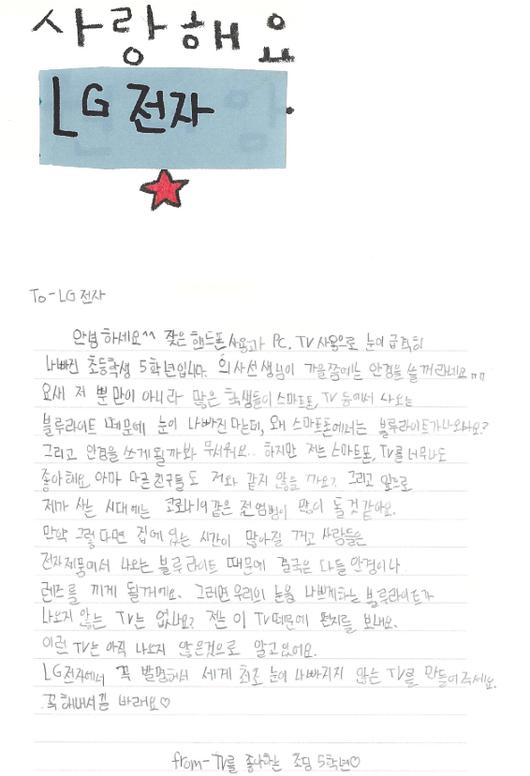 사랑해요
LG 전자
To - LG 전자
안녕하세요^^ 잦은 핸드폰 사용과 PC, TV 사용으로 눈이 급격히
나빠진 초등학생 5학년입니다. 의사선생님이 가을쯤에는 안경을 쓸꺼라네요ㅠㅠ
요새 저 뿐만이 아니라 많은 학생들이 스마트폰, TV 등에서 나오는
블루라이트 때문에 눈이 나빠진다는데, 왜 스마트폰에서는 블루라이트가 나오나요?
그리고 안경을 쓰게 될까봐 무서워요.. 하지만 저는 스마트폰, TV를 너무나도
좋아해요. 아마 다른 친구들도 저와 같지 않을까요? 그리고 앞으로
제가 사는 시대에는 코로나19같은 전염병이 많이 돌것 같아요.
만약 그렇다면 집에 있는 시간이 많아질 꺼고 사람들은
전자제품에서 나오는 블루라이트 때문에 결국은 다들 안경이나
렌즈를 끼게 될거예요. 그러면 우리의 눈을 나쁘게하는 블루라이트가
나오지 않는 TV는 없나요? 저는 이 TV때문에 편지를 보내요.
이런 TV는 아직 나오지 않은것으로 알고있어요.
LG전자에서 꼭 발명해서 세계 최초 눈이 나빠지지 않는 TV를 만들어주세요.
꼭 해내시길 바래요♡
from - TV를 좋아하는 초딩 5학년♡